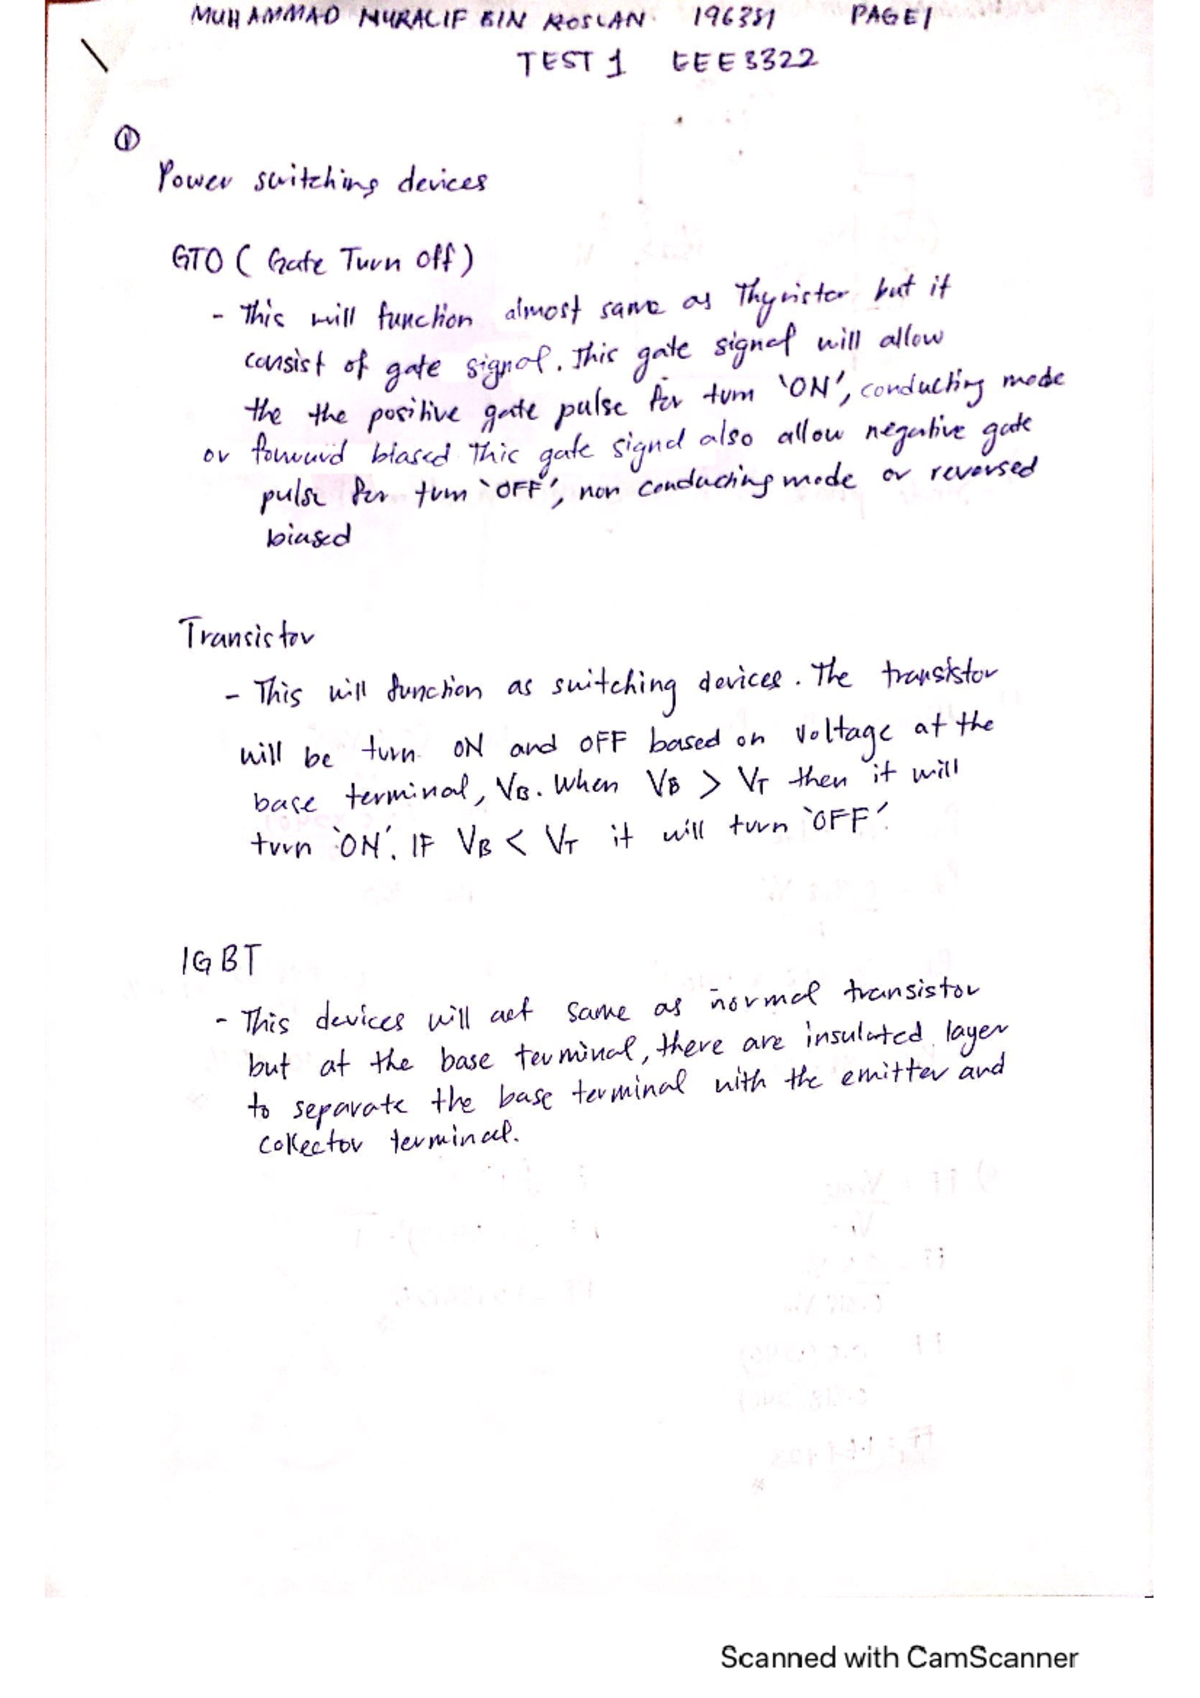 MUHAMMAD NURALIF BIN ROSLAN 196351 PAGE 1
TEST 1 EEE3322
①
Power switching devices
GTO ( Gate Turn Off )
- This will function almost same as Thyristor but it
consist of gate signal. This gate signal will allow
the the positive gate pulse for turn 'ON', conducting mode
or forward biased This gate signal also allow negative gate
pulse for turn 'OFF', non conducting mode or reversed
biased
Transistor
- This will function as switching devices. The transistor
will be turn ON and OFF based on voltage at the
base terminal, VB. When VB > VT then it will
turn 'ON'. IF VB < VT it will turn 'OFF'.
IGBT
- This devices will act same as normal transistor
but at the base terminal, there are insulated layer
to separate the base terminal with the emitter and
collector terminal.
Scanned with CamScanner